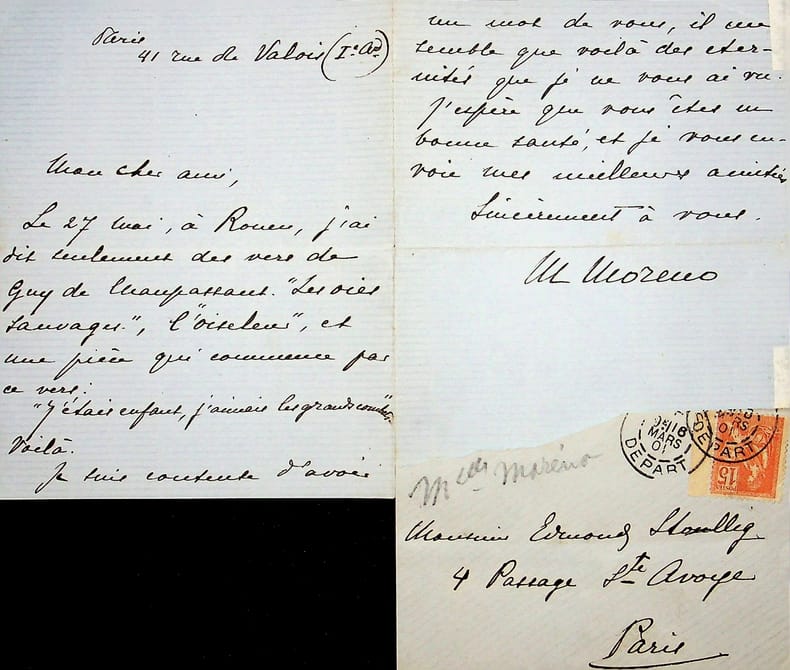 Paris
41 rue de Valois (Ier Ar.)
Mon cher ami,
Le 27 mai, à Rouen, j'ai
dit seulement des vers de
Guy de Maupassant. "Les oies
sauvages", "l'oiseleur", et
une pièce qui commence par
ce vers:
"J'étais enfant, j'aimais les grands combats"
Voilà.
Je suis contente d'avoir
un mot de vous, il me
semble que voilà des éter-
nités que je ne vous ai vu.
J'espère que vous êtes en
bonne santé, et je vous en-
voie mes meilleures amitiés
Sincèrement à vous.
M Moreno
18
MARS
01
DEPART
MARS
01
DEPART
15
POSTES
Moréno
Monsieur Edmond Stoullig
4 Passage Ste Avoye
Paris